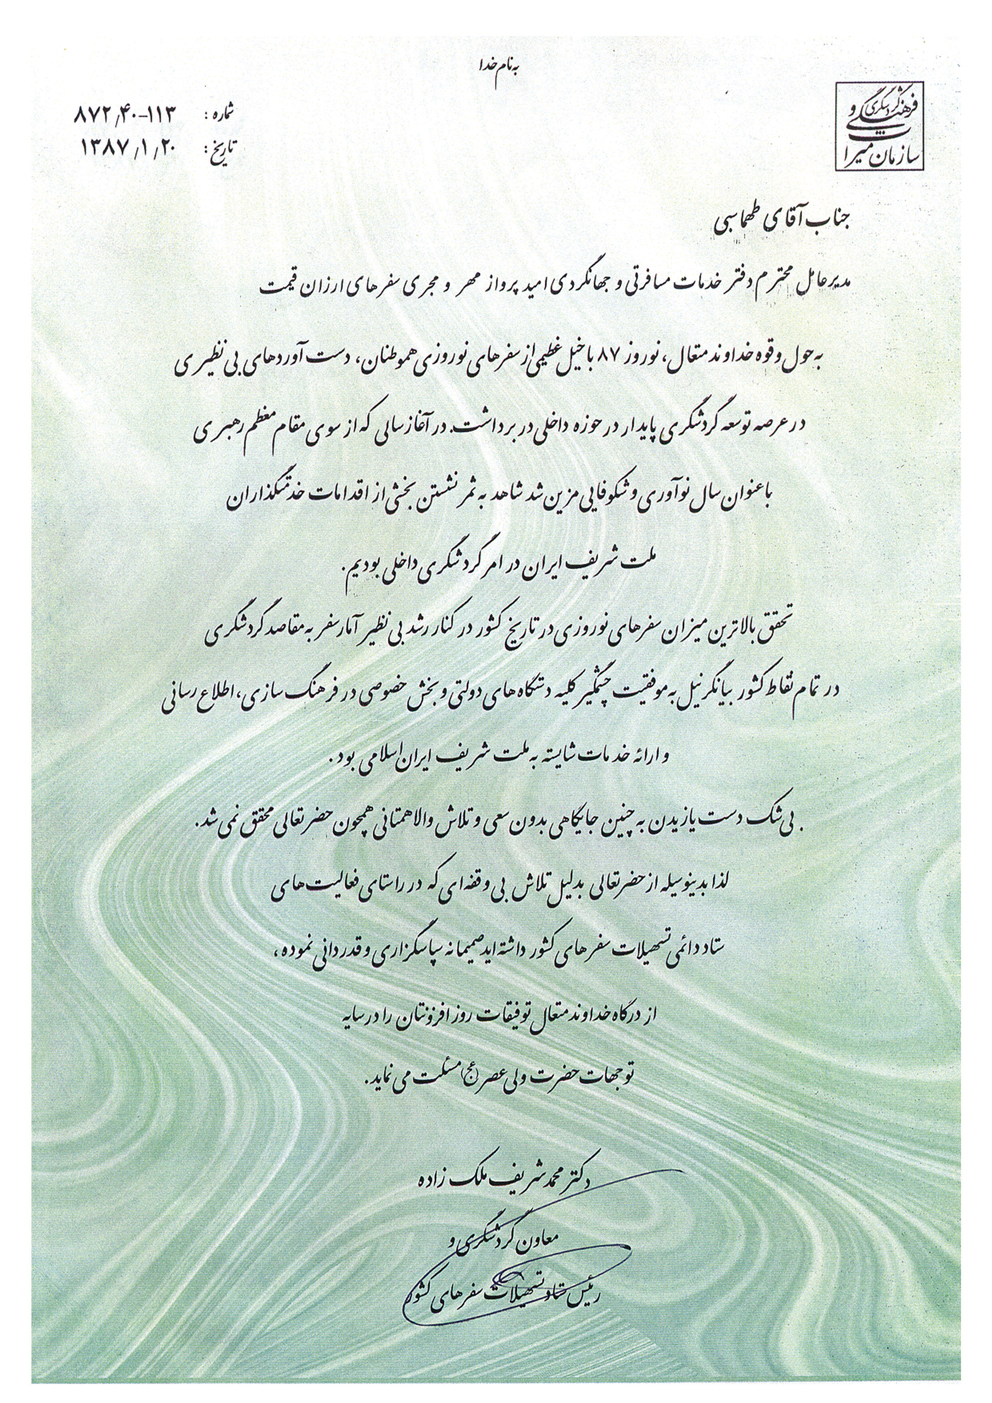 به نام خدا
شماره : ۱۱۳-۸۷۲/۴۰
تاریخ : ۱۳۸۷/۱/۲۰
سازمان میراث فرهنگی و گردشگری
جناب آقای طهماسبی
مدیرعامل محترم دفتر خدمات مسافرتی و جهانگردی امید پرواز مهر و مجری سفرهای ارزان قیمت
به حول و قوه خداوند متعال، نوروز ۸۷ با خیل عظیمی از سفرهای نوروزی هموطنان، دست آوردهای بی نظیری
در عرصه توسعه گردشگری پایدار در حوزه داخلی در برداشت. در آغاز سالی که از سوی مقام معظم رهبری
با عنوان سال نوآوری و شکوفایی مزین شد شاهد به ثمر نشستن بخشی از اقدامات خدمتگذاران
ملت شریف ایران در امر گردشگری داخلی بودیم.
تحقق بالاترین میزان سفرهای نوروزی در تاریخ کشور در کنار رشد بی نظیر آمار سفر به مقاصد گردشگری
در تمام نقاط کشور بیانگر نیل به موفقیت چشمگیر کلیه دستگاه های دولتی و بخش خصوصی در فرهنگ سازی، اطلاع رسانی
و ارائه خدمات شایسته به ملت شریف ایران اسلامی بود.
بی شک دست یازیدن به چنین جایگاهی بدون سعی و تلاش والاهمتانی همچون حضرتعالی محقق نمی شد.
لذا بدینوسیله از حضرتعالی بدلیل تلاش بی وقفه ای که در راستای فعالیت های
ستاد دائمی تسهیلات سفرهای کشور داشته اید صمیمانه سپاسگزاری و قدردانی نموده،
از درگاه خداوند متعال توفیقات روز افزونتان را در سایه
توجهات حضرت ولی عصر (عج) مسئلت می نماید.
دکتر محمد شریف ملک زاده
معاون گردشگری و
رئیس ستاد تسهیلات سفرهای کشور